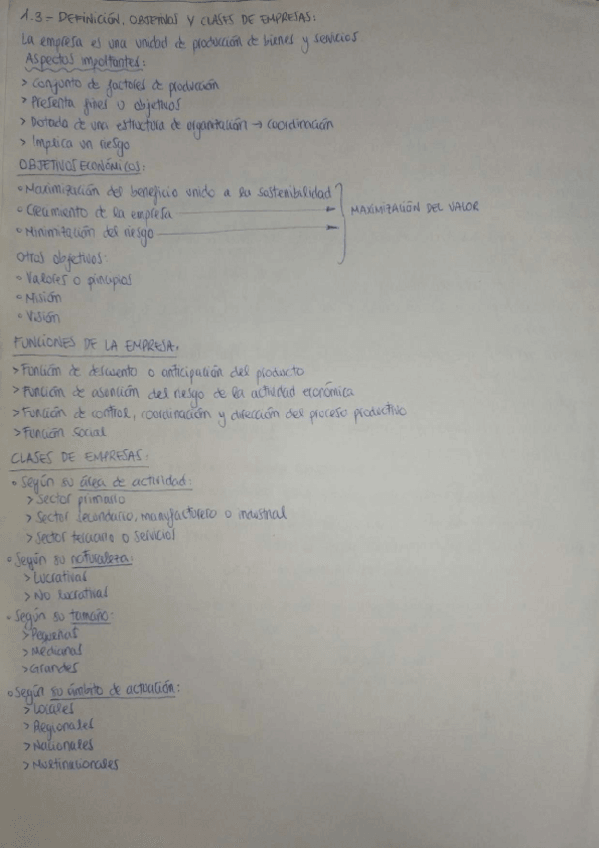 1.3.- DEFINICIÓN, OBJETIVOS Y CLASES DE EMPRESAS:
La empresa es una unidad de producción de bienes y servicios
Aspectos importantes:
> Conjunto de factores de producción
> Presenta fines u objetivos
> Dotada de una estructura de organización → coordinación
> Implica un riesgo
OBJETIVOS ECONÓMICOS:
• Maximización del beneficio unido a la sostenibilidad
• Crecimiento de la empresa
MAXIMIZACIÓN DEL VALOR
• Minimización del riesgo
Otros objetivos:
• Valores o principios
• Misión
• Visión
FUNCIONES DE LA EMPRESA.
> Función de descuento o anticipación del producto
> Función de asunción del riesgo de la actividad económica
> Función de control, coordinación y dirección del proceso productivo
> Función social
CLASES DE EMPRESAS:
• Según su área de actividad:
> Sector primario
> Sector secundario, manufacturero o industrial
> Sector terciario o servicios
• Según su naturaleza:
> Lucrativas
> No lucrativas
• Según su tamaño:
> Pequeñas
> Medianas
> Grandes
• Según su ámbito de actuación:
> Locales
> Regionales
> Nacionales
> Multinacionales